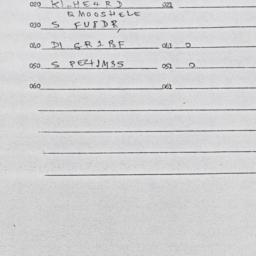 020 KL. HE4RD 021
& MOOSHELE
030 S FUDDR,
040 DI GR1BF 041 0
050 S PE41M35 051 0
060 061